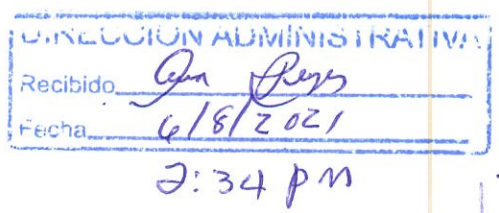 DIRECCION ADMINISTRATIVA
Recibido Ana Reyes
Fecha 6/8/2021
2:34 PM